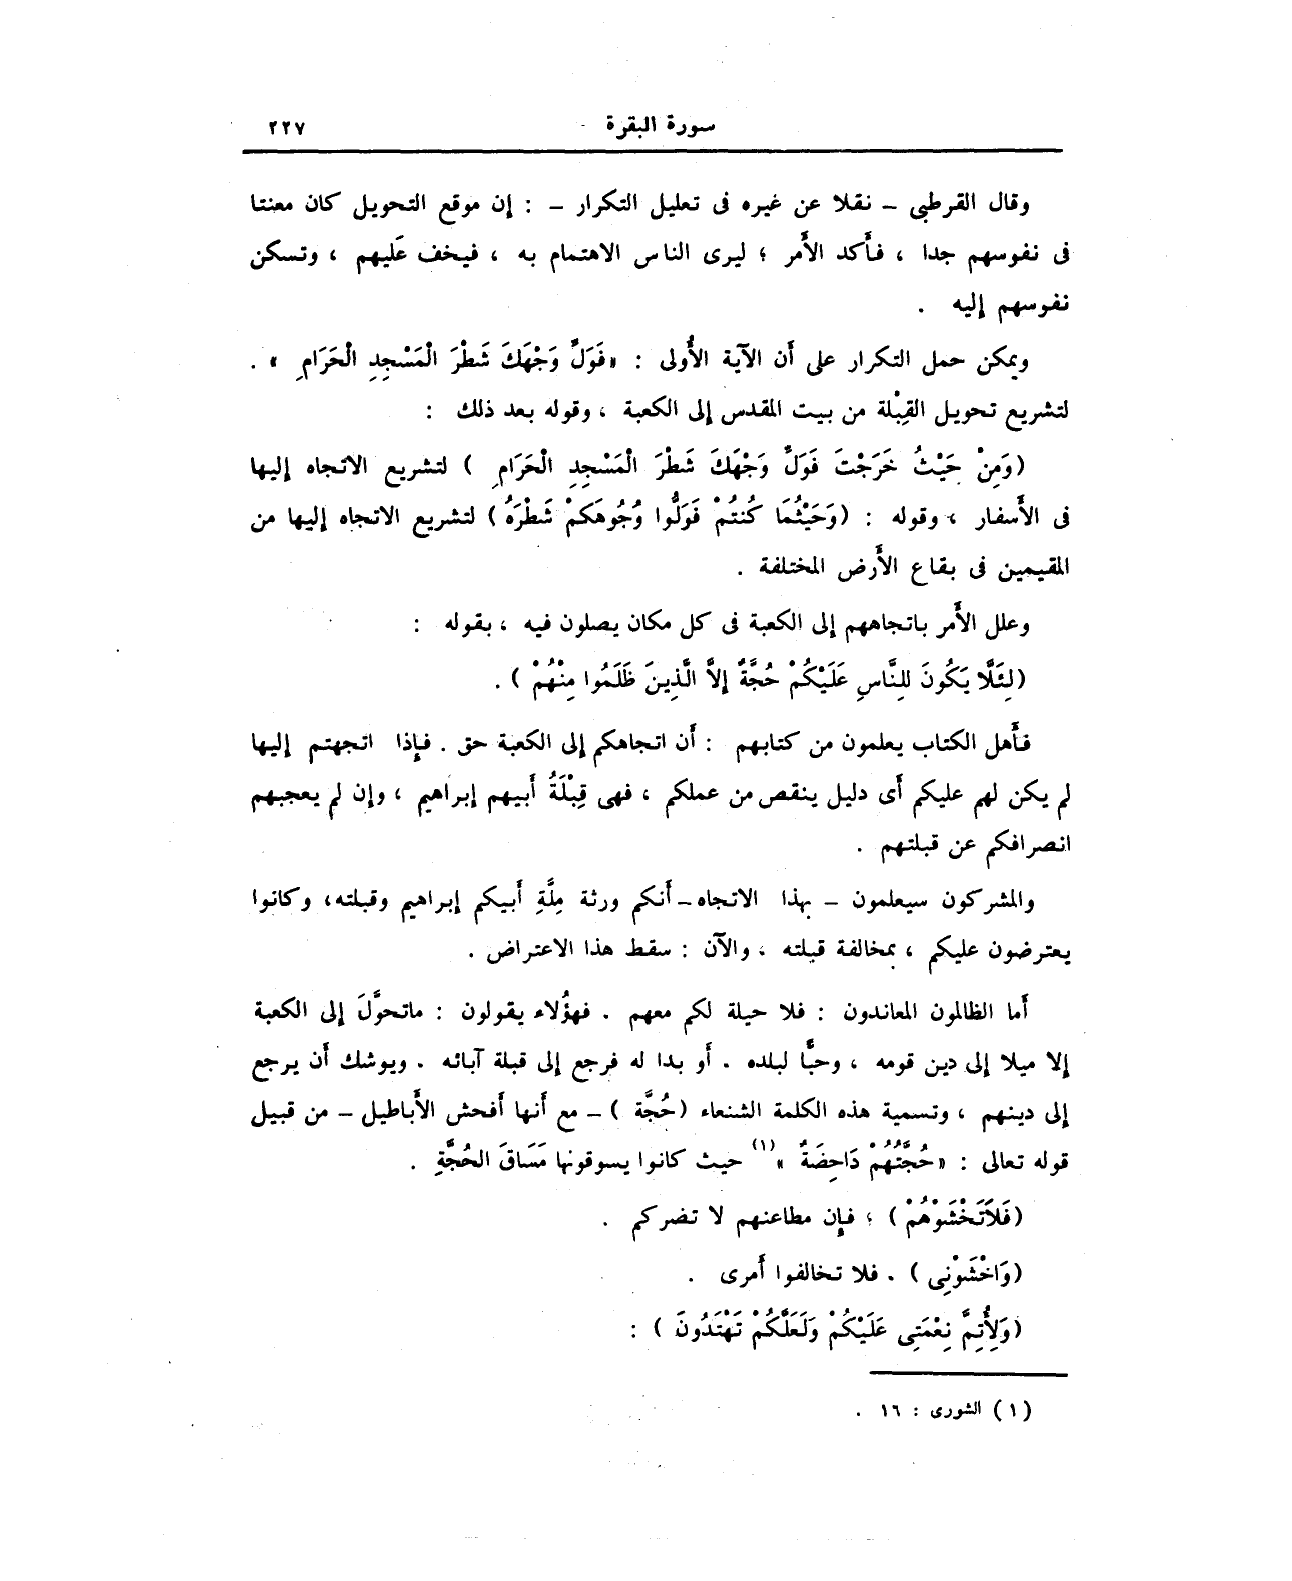 سورة البقرة ٢٢٧
وقال القرطبي – نقلا عن غيره فى تعليل التكرار – : إن موقع التحويل كان معنتا
فى نفوسهم جدا ، فأَكد الأَمر ؛ ليرى الناس الاهتمام به ، فيخف عَليهم ، وتسكن
نفوسهم إليه .
ويمكن حمل التكرار على أَن الآية الأُولى : «فَوَلِّ وَجْهَكَ شَطْرَ الْمَسْجِدِ الْحَرَامِ » .
لتشريع تحويل القِبْلة من بيت المقدس إلى الكعبة ، وقوله بعد ذلك :
(وَمِنْ حَيْثُ خَرَجْتَ فَوَلِّ وَجْهَكَ شَطْرَ الْمَسْجِدِ الْحَرَامِ ) لتشريع الاتجاه إليها
فى الأَسفار ، وقوله : (وَحَيْثُمَا كُنتُمْ فَوَلُّوا وُجُوهَكُمْ شَطْرَهُ) لتشريع الاتجاه إليها من
المقيمين فى بقاع الأَرض المختلفة .
وعلل الأَمر باتجاههم إلى الكعبة فى كل مكان يصلون فيه ، بقوله :
(لِئَلَّا يَكُونَ لِلنَّاسِ عَلَيْكُمْ حُجَّةٌ إِلاَّ الَّذِينَ ظَلَمُوا مِنْهُمْ ) .
فأَهل الكتاب يعلمون من كتابهم : أَن اتجاهكم إلى الكعبة حق . فإِذا اتجهتم إليها
لم يكن لهم عليكم أَى دليل ينقص من عملكم ، فهى قِبْلَةُ أَبيهم إبراهيم ، وإن لم يعجبهم
انصرافكم عن قبلتهم .
والمشركون سيعلمون – بهذا الاتجاه – أَنكم ورثة مِلَّةِ أَبيكم إبراهيم وقبلته، وكانوا
يعترضون عليكم ، بمخالفة قبلته ، والآن : سقط هذا الاعتراض .
أَما الظالمون المعاندون : فلا حيلة لكم معهم . فهؤُلاء يقولون : ماتحوَّلَ إلى الكعبة
إلا ميلا إلى دين قومه ، وحبًّا لبلده . أَو بدا له فرجع إلى قبلة آبائه . ويوشك أَن يرجع
إلى دينهم ، وتسمية هذه الكلمة الشنعاء (حُجَّة ) – مع أَنها أَفحش الأَباطيل – من قبيل
قوله تعالى : «حُجَّتُهُمْ دَاحِضَةٌ »(١) حيث كانوا يسوقونها مَسَاقَ الحُجَّةِ .
(فَلاَتَخْشَوْهُمْ ) ؛ فإِن مطاعنهم لا تضركم .
(وَاخْشَوْنِى ) . فلا تخالفوا أَمرى .
(وَلِأُتِمَّ نِعْمَتِى عَلَيْكُمْ وَلَعَلَّكُمْ تَهْتَدُونَ ) :
(١) الشورى : ١٦ .